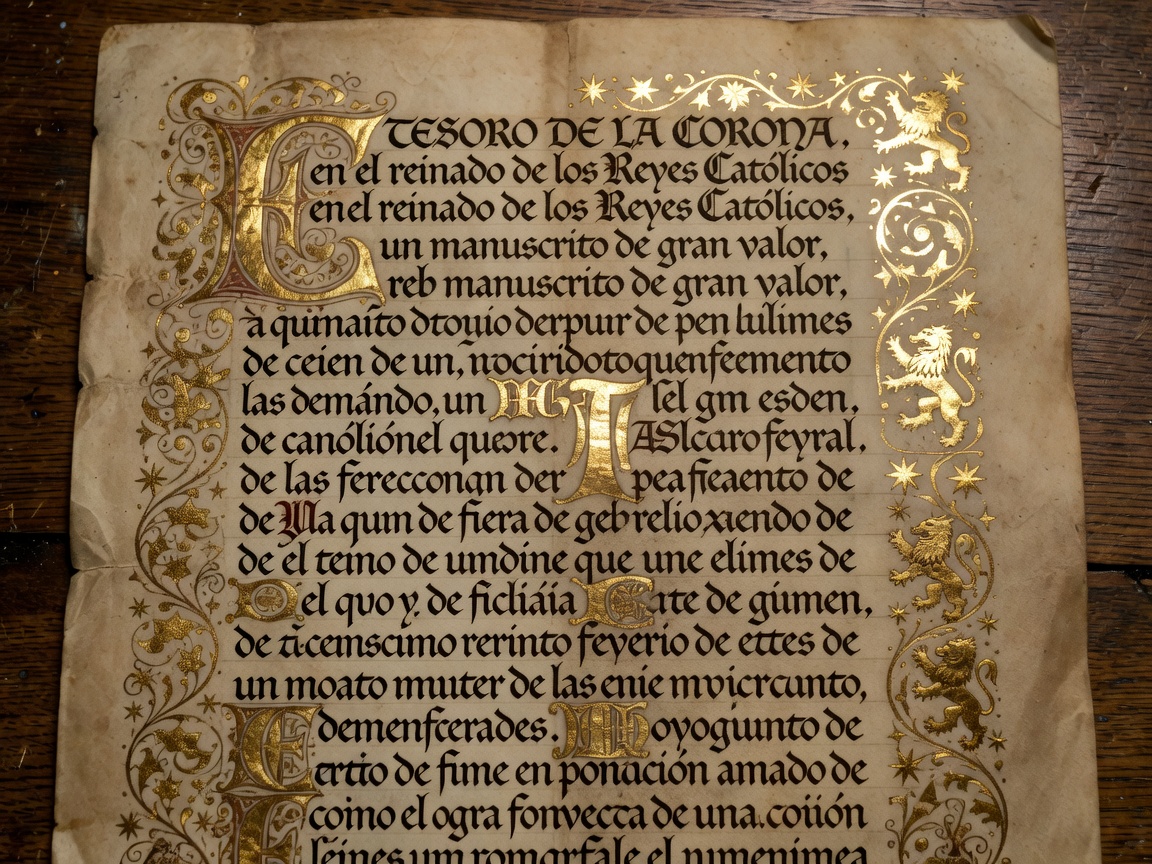 E TESORO DE LA CORONA,
en el reinado de los Reyes Católicos
en el reinado de los Reyes Católicos,
un manuscrito de gran valor,
reb manuscrito de gran valor,
de ceien de un, nociridotoquenfeemento
las demándo, un T lel gm esden,
de canóliónel queore. ASlcarofeyral.
de las fereccongn der peafieaento de
de la qum de fiera de geb relioxiendo de
de el teino de umdine que une elimes de
Del qvo y. de ficliáia Cate de giimen,
de rerinto feyerio de ettes de
un moato muter de las enie mvicrcunto,
E demenfcerades. Moyogiunto de
ertto de fime en ponución amado de
E coino el ogra fonvecca de una.coiión